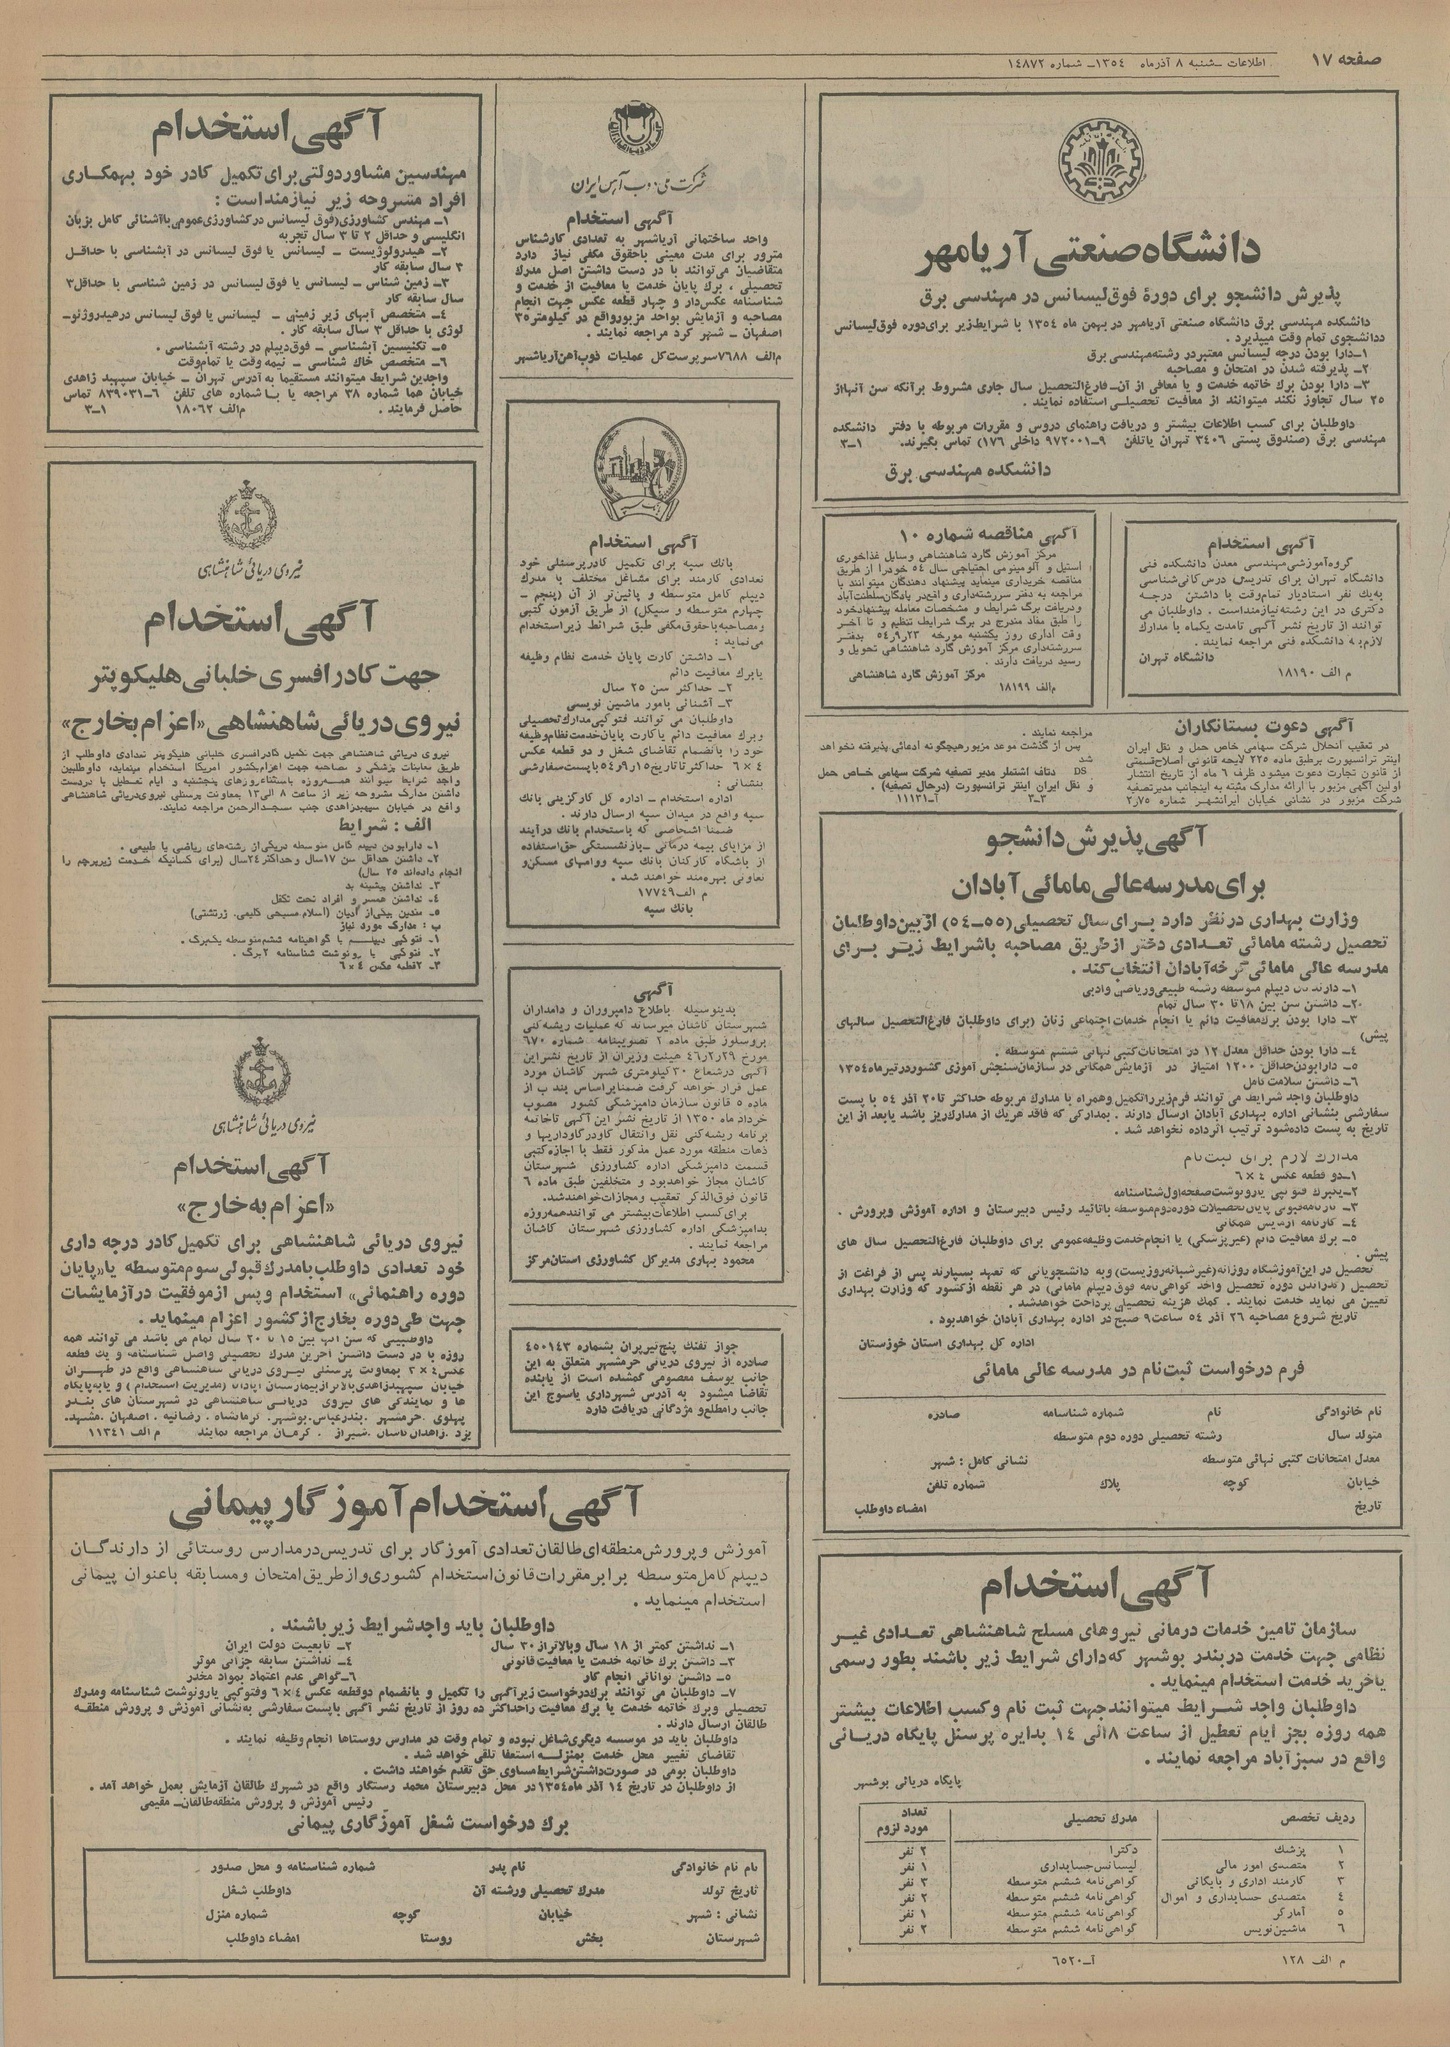 صفحه ۱۷
اطلاعات ـ شنبه ۸ آذرماه ۱۳۵۴ ـ شماره ۱۴۸۷۲
دانشگاه صنعتی آریامهر
پذیرش دانشجو برای دورهٔ فوق لیسانس در مهندسی برق
دانشکده مهندسی برق دانشگاه صنعتی آریامهر در بهمن ماه ۱۳۵۴ با شرایط زیر برای دوره فوق لیسانس
دانشجوی تمام وقت میپذیرد .
۱ـ دارا بودن درجه لیسانس معتبر در رشته مهندسی برق
۲ـ پذیرفته شدن در امتحان و مصاحبه
۳ـ دارا بودن برك خاتمه خدمت و یا معافی از آن ـ فارغ‌التحصیل سال جاری مشروط برآنکه سن آنها از
۲۵ سال تجاوز نکند میتوانند از معافیت تحصیلی استفاده نمایند .
داوطلبان برای کسب اطلاعات بیشتر و دریافت راهنمای دروس و مقررات مربوطه با دفتر دانشکده
مهندسی برق (صندوق پستی ۳۴۰۶ تهران یاتلفن ۹ـ۹۷۲۰۰۱ داخلی ۱۷۶) تماس بگیرند. ۱ـ۳
دانشکده مهندسی برق
آگهی استخدام
گروه آموزشی مهندسی معدن دانشکده فنی
دانشگاه تهران برای تدریس درس کانی‌شناسی
به‌یك نفر استادیار تمام‌وقت با داشتن درجه
دکتری در این رشته نیازمند است . داوطلبان می
توانند از تاریخ نشر آگهی تامدت یکماه با مدارك
لازم به دانشکده فنی مراجعه نمایند .
دانشگاه تهران
م الف ۱۸۱۹۰
آگهی مناقصه شماره ۱۰
مرکز آموزش گارد شاهنشاهی وسایل غذاخوری
استیل و آلومینومی احتیاجی سال ۵۴ خودرا از طریق
مناقصه خریداری مینماید پیشنهاد دهندگان میتوانند با
مراجعه به دفتر سررشته‌داری واقع‌در پادگان سلطنت‌آباد
ودریافت برگ شرایط و مشخصات معامله پیشنهاد خود
را طبق مفاد مندرج در برگ شرایط تنظیم و تا آخر
وقت اداری روز یکشنبه مورخه ۵۴ر۹ر۲۳ بدفتر
سررشته‌داری مرکز آموزش گارد شاهنشاهی تحویل و
رسید دریافت دارند .
مرکز آموزش گارد شاهنشاهی
م‌الف ۱۸۱۹۹
آگهی دعوت بستانکاران
در تعقیب انحلال شرکت سهامی خاص حمل و نقل ایران
اینتر ترانسپورت برطبق ماده ۲۲۵ لایحه قانونی اصلاح‌قسمتی
از قانون تجارت دعوت میشود ظرف ۶ ماه از تاریخ انتشار
اولین آگهی مزبور با ارائه مدارك مثبته به اینجانب مدیرتصفیه
شرکت مزبور در نشانی خیابان ایرانشهر شماره ۷۵ر۲
مراجعه نمایند .
پس از گذشت موعد مزبور هیچگونه ادعائی پذیرفته نخواهد
شد
DS دتلف اشتمار مدیر تصفیه شرکت سهامی خاص حمل
و نقل ایران اینتر ترانسپورت (درحال تصفیه) .
۳ـ۳ آـ۱۱۱۳۱
آگهی پذیرش دانشجو
برای مدرسه عالی مامائی آبادان
وزارت بهداری در نظر دارد برای سال تحصیلی (۵۵ـ۵۴) از بین داوطلبان
تحصیل رشته مامائی تعدادی دختر از طریق مصاحبه باشرایط زیر برای
مدرسه عالی مامائی فرخه آبادان انتخاب کند .
۱ـ دارندگان دیپلم متوسطه رشته طبیعی وریاضی وادبی
۲ـ داشتن سن بین ۱۸ تا ۳۰ سال تمام
۳ـ دارا بودن برك معافیت دائم یا انجام خدمات اجتماعی زنان (برای داوطلبان فارغ‌التحصیل سالهای
پیش)
۴ـ دارا بودن حداقل معدل ۱۲ در امتحانات کتبی نهائی ششم متوسطه .
۵ـ دارا بودن حداقل ۱۲۰۰ امتیاز در آزمایش همگانی در سازمان سنجش آموزی کشور در تیر ماه ۱۳۵۴
۶ـ داشتن سلامت کامل
داوطلبان واجد شرایط می توانند فرم زیررا تکمیل وهمراه با مدارك مربوطه حداکثر تا ۲۰ آذر ۵۴ با پست
سفارشی بنشانی اداره بهداری آبادان ارسال دارند . بمدارکی که فاقد هریك از مدارك زیر باشد یا بعد از این
تاریخ به پست داده شود ترتیب اثر داده نخواهد شد .
مدارك لازم برای ثبت نام
۱ـ دو قطعه عکس ۴×۶
۲ـ یکبرك فتوکپی یا رونوشت صفحه اول شناسنامه
۳ـ کارنامه قبولی پایان تحصیلات دوره دوم متوسطه باتائید رئیس دبیرستان و اداره آموزش و پرورش .
۴ـ کارنامه آزمایش همگانی
۵ـ برك معافیت دائم (غیرپزشکی) یا انجام خدمت وظیفه عمومی برای داوطلبان فارغ التحصیل سال های
پیش .
تحصیل در این آموزشگاه روزانه (غیر شبانه روزیست) وبه دانشجویانی که تعهد بسپارند پس از فراغت از
تحصیل (گذراندن دوره تحصیل واخذ گواهی نامه فوق دیپلم مامائی) در هر نقطه از کشور که وزارت بهداری
تعیین می نماید خدمت نمایند . کمك هزینه تحصیلی پرداخت خواهد شد .
تاریخ شروع مصاحبه ۲۶ آذر ۵۴ ساعت ۹ صبح در اداره بهداری آبادان خواهد بود .
اداره کل بهداری استان خوزستان
فرم درخواست ثبت نام در مدرسه عالی مامائی
نام خانوادگی نام شماره شناسنامه صادره
متولد سال رشته تحصیلی دوره دوم متوسطه
معدل امتحانات کتبی نهائی متوسطه نشانی کامل : شهر
خیابان کوچه پلاك شماره تلفن
تاریخ امضاء داوطلب
آگهی استخدام
سازمان تامین خدمات درمانی نیروهای مسلح شاهنشاهی تعدادی غیر
نظامی جهت خدمت در بندر بوشهر که دارای شرایط زیر باشند بطور رسمی
یا خرید خدمت استخدام مینماید .
داوطلبان واجد شرایط میتوانند جهت ثبت نام وکسب اطلاعات بیشتر
همه روزه بجز ایام تعطیل از ساعت ۸ الی ۱۴ بدایره پرسنل پایگاه دریائی
واقع در سبز آباد مراجعه نمایند .
پایگاه دریائی بوشهر
ردیف تخصص مدرك تحصیلی تعداد مورد لزوم
۱ پزشك دکترا ۲ نفر
۲ متصدی امور مالی لیسانس حسابداری ۱ نفر
۳ کارمند اداری و بایگانی گواهی نامه ششم متوسطه ۳ نفر
۴ متصدی حسابداری و اموال گواهی نامه ششم متوسطه ۲ نفر
۵ آمارگر گواهی نامه ششم متوسطه ۱ نفر
۶ ماشین نویس گواهی نامه ششم متوسطه ۲ نفر
م الف ۱۲۸ آـ۶۵۲۰
شرکت ملی ذوب آهن ایران
آگهی استخدام
واحد ساختمانی آریاشهر به تعدادی کارشناس
مترور برای مدت معینی باحقوق مکفی نیاز دارد
متقاضیان می‌توانند با در دست داشتن اصل مدرك
تحصیلی ، برك پایان خدمت یا معافیت از خدمت و
شناسنامه عکس‌دار و چهار قطعه عکس جهت انجام
مصاحبه و آزمایش بواحد مزبور واقع در کیلومتر ۳۵
اصفهان ـ شهر کرد مراجعه نمایند .
م‌الف ۷۶۸۸ سرپرست کل عملیات ذوب آهن آریاشهر
آگهی استخدام
بانك سپه برای تکمیل کادر پرسنلی خود
تعدادی کارمند برای مشاغل مختلف با مدرك
دیپلم کامل متوسطه و پائین‌تر از آن (پنجم ـ
چهارم متوسطه و سیکل) از طریق آزمون کتبی
ومصاحبه باحقوق مکفی طبق شرائط زیر استخدام
می‌نماید :
۱ـ داشتن کارت پایان خدمت نظام وظیفه
یابرك معافیت دائم
۲ـ حداکثر سن ۲۵ سال
۳ـ آشنائی بامور ماشین نویسی
داوطلبان می توانند فتوکپی مدارك تحصیلی
وبرك معافیت دائم یا کارت پایان خدمت نظام وظیفه
خود را بانضمام تقاضای شغل و دو قطعه عکس
۴ × ۶ حداکثر تا تاریخ ۵۴ر۹ر۱۵ با پست سفارشی
بنشانی :
اداره استخدام ـ اداره کل کارگزینی بانك
سپه واقع در میدان سپه ارسال دارند .
ضمنا اشخاصی که باستخدام بانك درآیند
از مزایای بیمه درمانی ـ بازنشستگی حق استفاده
از باشگاه کارکنان بانك سپه ووامهای مسکن و
تعاونی بهره‌مند خواهند شد .
م الف ۱۷۷۴۹
بانك سپه
آگهی
بدینوسیله باطلاع دامپروران و دامداران
شهرستان کاشان میرساند که عملیات ریشه کنی
بروسلوز طبق ماده ۲ تصویبنامه شماره ۶۷۰
مورخ ۴۶ر۲ر۲۹ هیئت وزیران از تاریخ نشر این
آگهی درشعاع ۳۰ کیلومتری شهر کاشان مورد
عمل قرار خواهد گرفت ضمنا براساس بند ب از
ماده ۵ قانون سازمان دامپزشکی کشور مصوب
خرداد ماه ۱۳۵۰ از تاریخ نشر این آگهی تاخاتمه
برنامه ریشه کنی نقل وانتقال گاودرگاوداریها و
دهات منطقه مورد عمل مذکور فقط با اجازه کتبی
قسمت دامپزشکی اداره کشاورزی شهرستان
کاشان مجاز خواهد بود و متخلفین طبق ماده ۶
قانون فوق‌الذکر تعقیب ومجازات خواهند شد.
برای کسب اطلاعات بیشتر می توانند همه روزه
بدامپزشکی اداره کشاورزی شهرستان کاشان
مراجعه نمایند .
محمود بهاری مدیر کل کشاورزی استان مرکز
جواز تفنك پنج تیرپران بشماره ۴۵۰۱۴۳
صادره از نیروی دریائی خرمشهر متعلق به این
جانب یوسف معصومی گمشده است از یابنده
تقاضا میشود به آدرس شهرداری یاسوج این
جانب را مطلع و مژدگانی دریافت دارد
آگهی استخدام
مهندسین مشاور دولتی برای تکمیل کادر خود بهمکاری
افراد مشروحه زیر نیازمند است :
۱ـ مهندس کشاورزی (فوق لیسانس در کشاورزی عمومی با آشنائی کامل بزبان
انگلیسی و حداقل ۲ تا ۳ سال تجربه
۲ـ هیدرولوژیست ـ لیسانس یا فوق لیسانس در آبشناسی با حداقل
۳ سال سابقه کار
۳ـ زمین شناس ـ لیسانس یا فوق لیسانس در زمین شناسی با حداقل ۳
سال سابقه کار
۴ـ متخصص آبهای زیر زمینی ـ لیسانس یا فوق لیسانس در هیدروژئو-
لوژی با حداقل ۳ سال سابقه کار .
۵ـ تکنیسین آبشناسی ـ فوق دیپلم در رشته آبشناسی .
۶ـ متخصص خاك شناسی ـ نیمه وقت یا تمام‌وقت
واجدین شرایط میتوانند مستقیما به آدرس تهران ـ خیابان سپهبد زاهدی
خیابان هما شماره ۳۸ مراجعه یا با شماره های تلفن ۶ـ۸۳۹۰۳۱ تماس
حاصل فرمایند . م‌الف ۱۸۰۶۲ ۱ـ۳
نیروی دریائی شاهنشاهی
آگهی استخدام
جهت کادر افسری خلبانی هلیکوپتر
نیروی دریائی شاهنشاهی «اعزام بخارج»
نیروی دریائی شاهنشاهی جهت تکمیل کادر افسری خلبانی هلیکوپتر تعدادی داوطلب از
طریق معاینات پزشکی و مصاحبه جهت اعزام بکشور امریکا استخدام مینماید، داوطلبین
واجد شرایط میتوانند همه روزه باستثناء روزهای پنجشنبه و ایام تعطیل با دردست
داشتن مدارك مشروحه زیر از ساعت ۸ الی ۱۳ بمعاونت پرسنلی نیروی دریائی شاهنشاهی
واقع در خیابان سپهبد زاهدی جنب مسجد الرحمن مراجعه نمایند.
الف : شرایط
۱ـ دارابودن دیپلم کامل متوسطه دریکی از رشته‌های ریاضی یا طبیعی .
۲ـ داشتن حداقل سن ۱۷ سال و حداکثر ۲۴ سال (برای کسانیکه خدمت زیر پرچم را
انجام داده‌اند ۲۵ سال)
۳ـ نداشتن پیشینه بد
۴ـ نداشتن همسر و افراد تحت تکفل
۵ـ متدین بیکی از ادیان (اسلام مسیحی کلیمی، زرتشتی)
ب : مدارك مورد نیاز
۱ـ فتوکپی دیپلم یا گواهینامه ششم متوسطه یکبرگ .
۲ـ فتوکپی یا رونوشت شناسنامه ۲ برگ .
۳ـ ۲ قطعه عکس ۴×۶
نیروی دریائی شاهنشاهی
آگهی استخدام
«اعزام به خارج»
نیروی دریائی شاهنشاهی برای تکمیل کادر درجه داری
خود تعدادی داوطلب بامدرك قبولی سوم متوسطه یا «پایان
دوره راهنمائی» استخدام و پس از موفقیت در آزمایشات
جهت طی دوره بخارج از کشور اعزام مینماید .
داوطلبینی که سن آنها بین ۱۵ تا ۲۰ سال تمام می باشد می توانند همه
روزه با در دست داشتن آخرین مدرك تحصیلی واصل شناسنامه و یك قطعه
عکس ۴ × ۳ بمعاونت پرسنلی نیروی دریائی شاهنشاهی واقع در طهران
خیابان سپهبد زاهدی بالاتر از بیمارستان آپادانا (مدیریت استخدام) و یا به پایگاه
ها و نمایندگی های نیروی دریایی شاهنشاهی در شهرستان های بندر
پهلوی . خرمشهر . بندرعباس . بوشهر . کرمانشاه . رضائیه . اصفهان . مشهد.
یزد . زاهدان . کاشان . شیراز . کرمان مراجعه نمایند م الف ۱۱۳۴۱
آگهی استخدام آموزگار پیمانی
آموزش و پرورش منطقه‌ای طالقان تعدادی آموزگار برای تدریس در مدارس روستائی از دارندگان
دیپلم کامل متوسطه برابر مقررات قانون استخدام کشوری و از طریق امتحان ومسابقه با عنوان پیمانی
استخدام مینماید .
داوطلبان باید واجد شرایط زیر باشند .
۱ـ نداشتن کمتر از ۱۸ سال وبالاتر از ۳۰ سال ۲ـ تابعیت دولت ایران
۳ـ داشتن برك خاتمه خدمت یا معافیت قانونی ۴ـ نداشتن سابقه جزائی موثر
۵ـ داشتن توانائی انجام کار ۶ـ گواهی عدم اعتماد بمواد مخدر
۷ـ داوطلبان می توانند برك درخواست زیر آگهی را تکمیل و بانضمام دوقطعه عکس ۴×۶ وفتوکپی یارونوشت شناسنامه ومدرك
تحصیلی وبرك خاتمه خدمت یا برك معافیت راحداکثر ده روز از تاریخ نشر آگهی باپست سفارشی به‌نشانی آموزش و پرورش منطقه
طالقان ارسال دارند .
داوطلبان باید در موسسه دیگری شاغل نبوده و تمام وقت در مدارس روستاها انجام وظیفه نمایند .
تقاضای تغییر محل خدمت بمنزله استعفا تلقی خواهد شد .
داوطلبان بومی در صورت داشتن شرایط مساوی حق تقدم خواهند داشت .
از داوطلبان در تاریخ ۱۴ آذر ماه ۱۳۵۴ در محل دبیرستان محمد رستگار واقع در شهرك طالقان آزمایش بعمل خواهد آمد .
رئیس آموزش و پرورش منطقه طالقان ـ مقیمی
برك درخواست شغل آموزگاری پیمانی
نام نام خانوادگی نام پدر شماره شناسنامه و محل صدور
تاریخ تولد مدرك تحصیلی ورشته آن داوطلب شغل
نشانی : شهر خیابان کوچه شماره منزل
شهرستان بخش روستا امضاء داوطلب